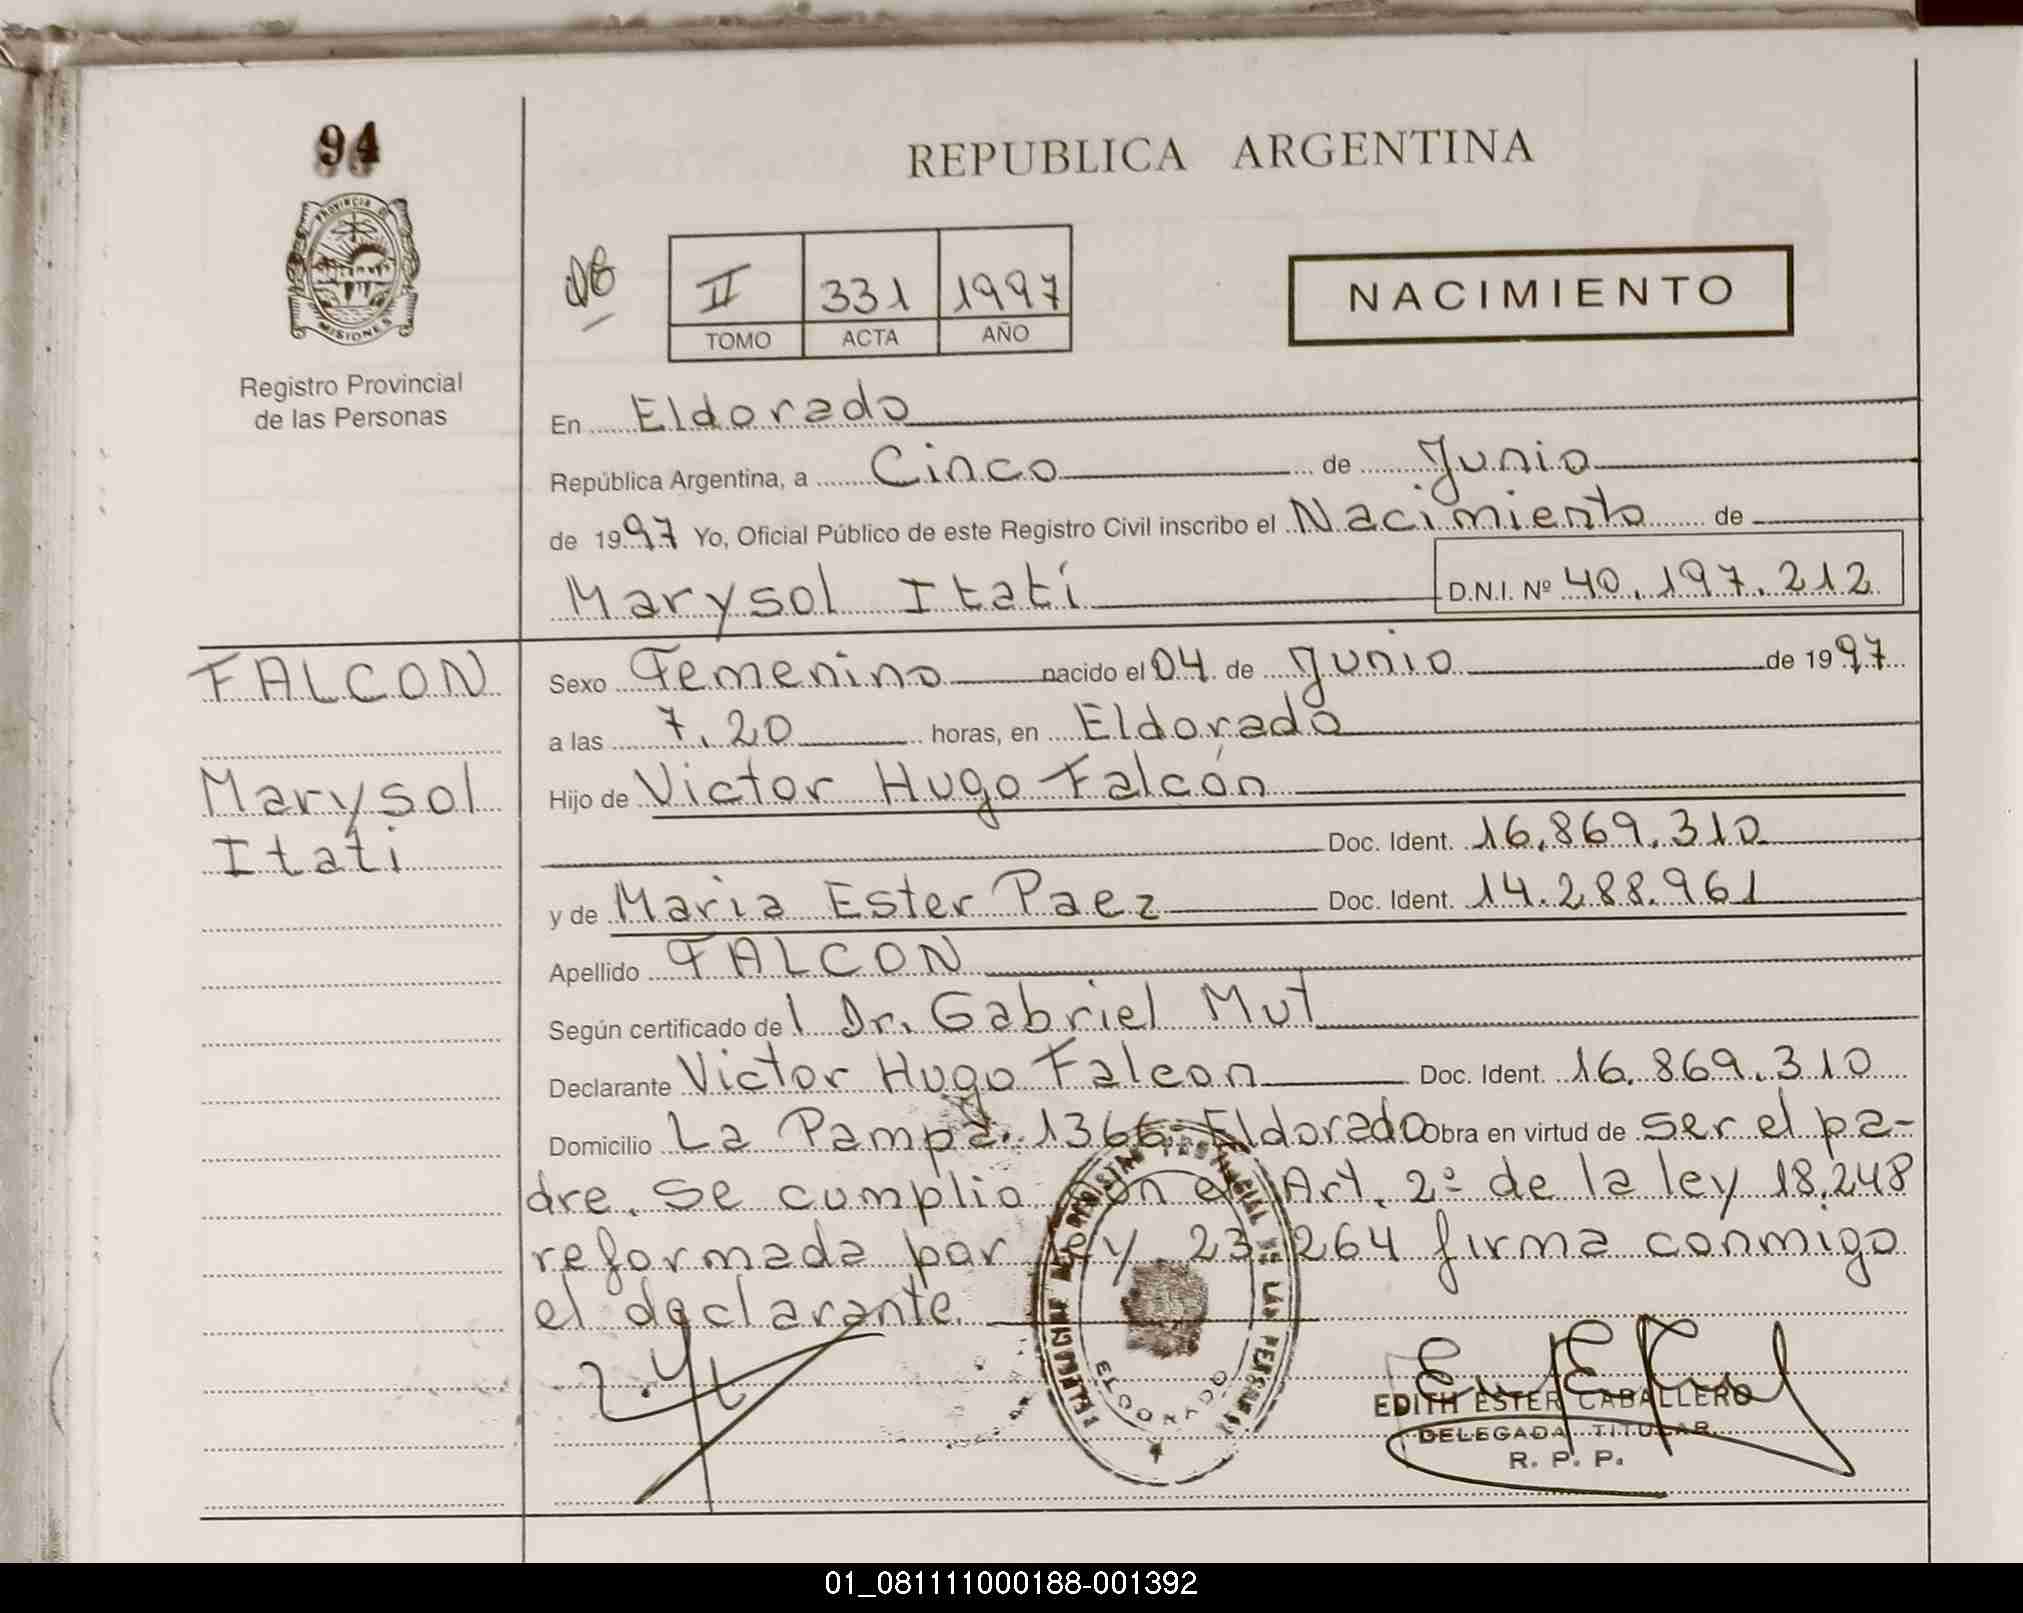 94
PROVINCIA DE
MISIONES
Registro Provincial
de las Personas
REPUBLICA ARGENTINA
II 331 1997
TOMO ACTA AÑO
NACIMIENTO
En Eldorado
República Argentina, a Cinco de Junio
de 1997 Yo, Oficial Público de este Registro Civil inscribo el Nacimiento de
Marysol Itatí D.N.I. Nº 40.197.212
FALCON
Marysol
Itati
Sexo Femenino nacido el 04 de Junio de 1997
a las 7.20 horas, en Eldorado
Hijo de Victor Hugo Falcón
Doc. Ident. 16.869.310
y de Maria Ester Paez Doc. Ident. 14.288.961
Apellido FALCON
Según certificado del Dr. Gabriel Mut
Declarante Victor Hugo Falcon Doc. Ident. 16.869.310
Domicilio La Pampa 1366 Eldorado Obra en virtud de ser el pa-
dre. Se cumplio con el Art. 2º de la ley 18.248
reformada por ley 23.264 firma conmigo
el declarante.
ELDORADO
EDITH ESTER CABALLERO
DELEGADA TITULAR
R. P. P.
01_081111000188-001392